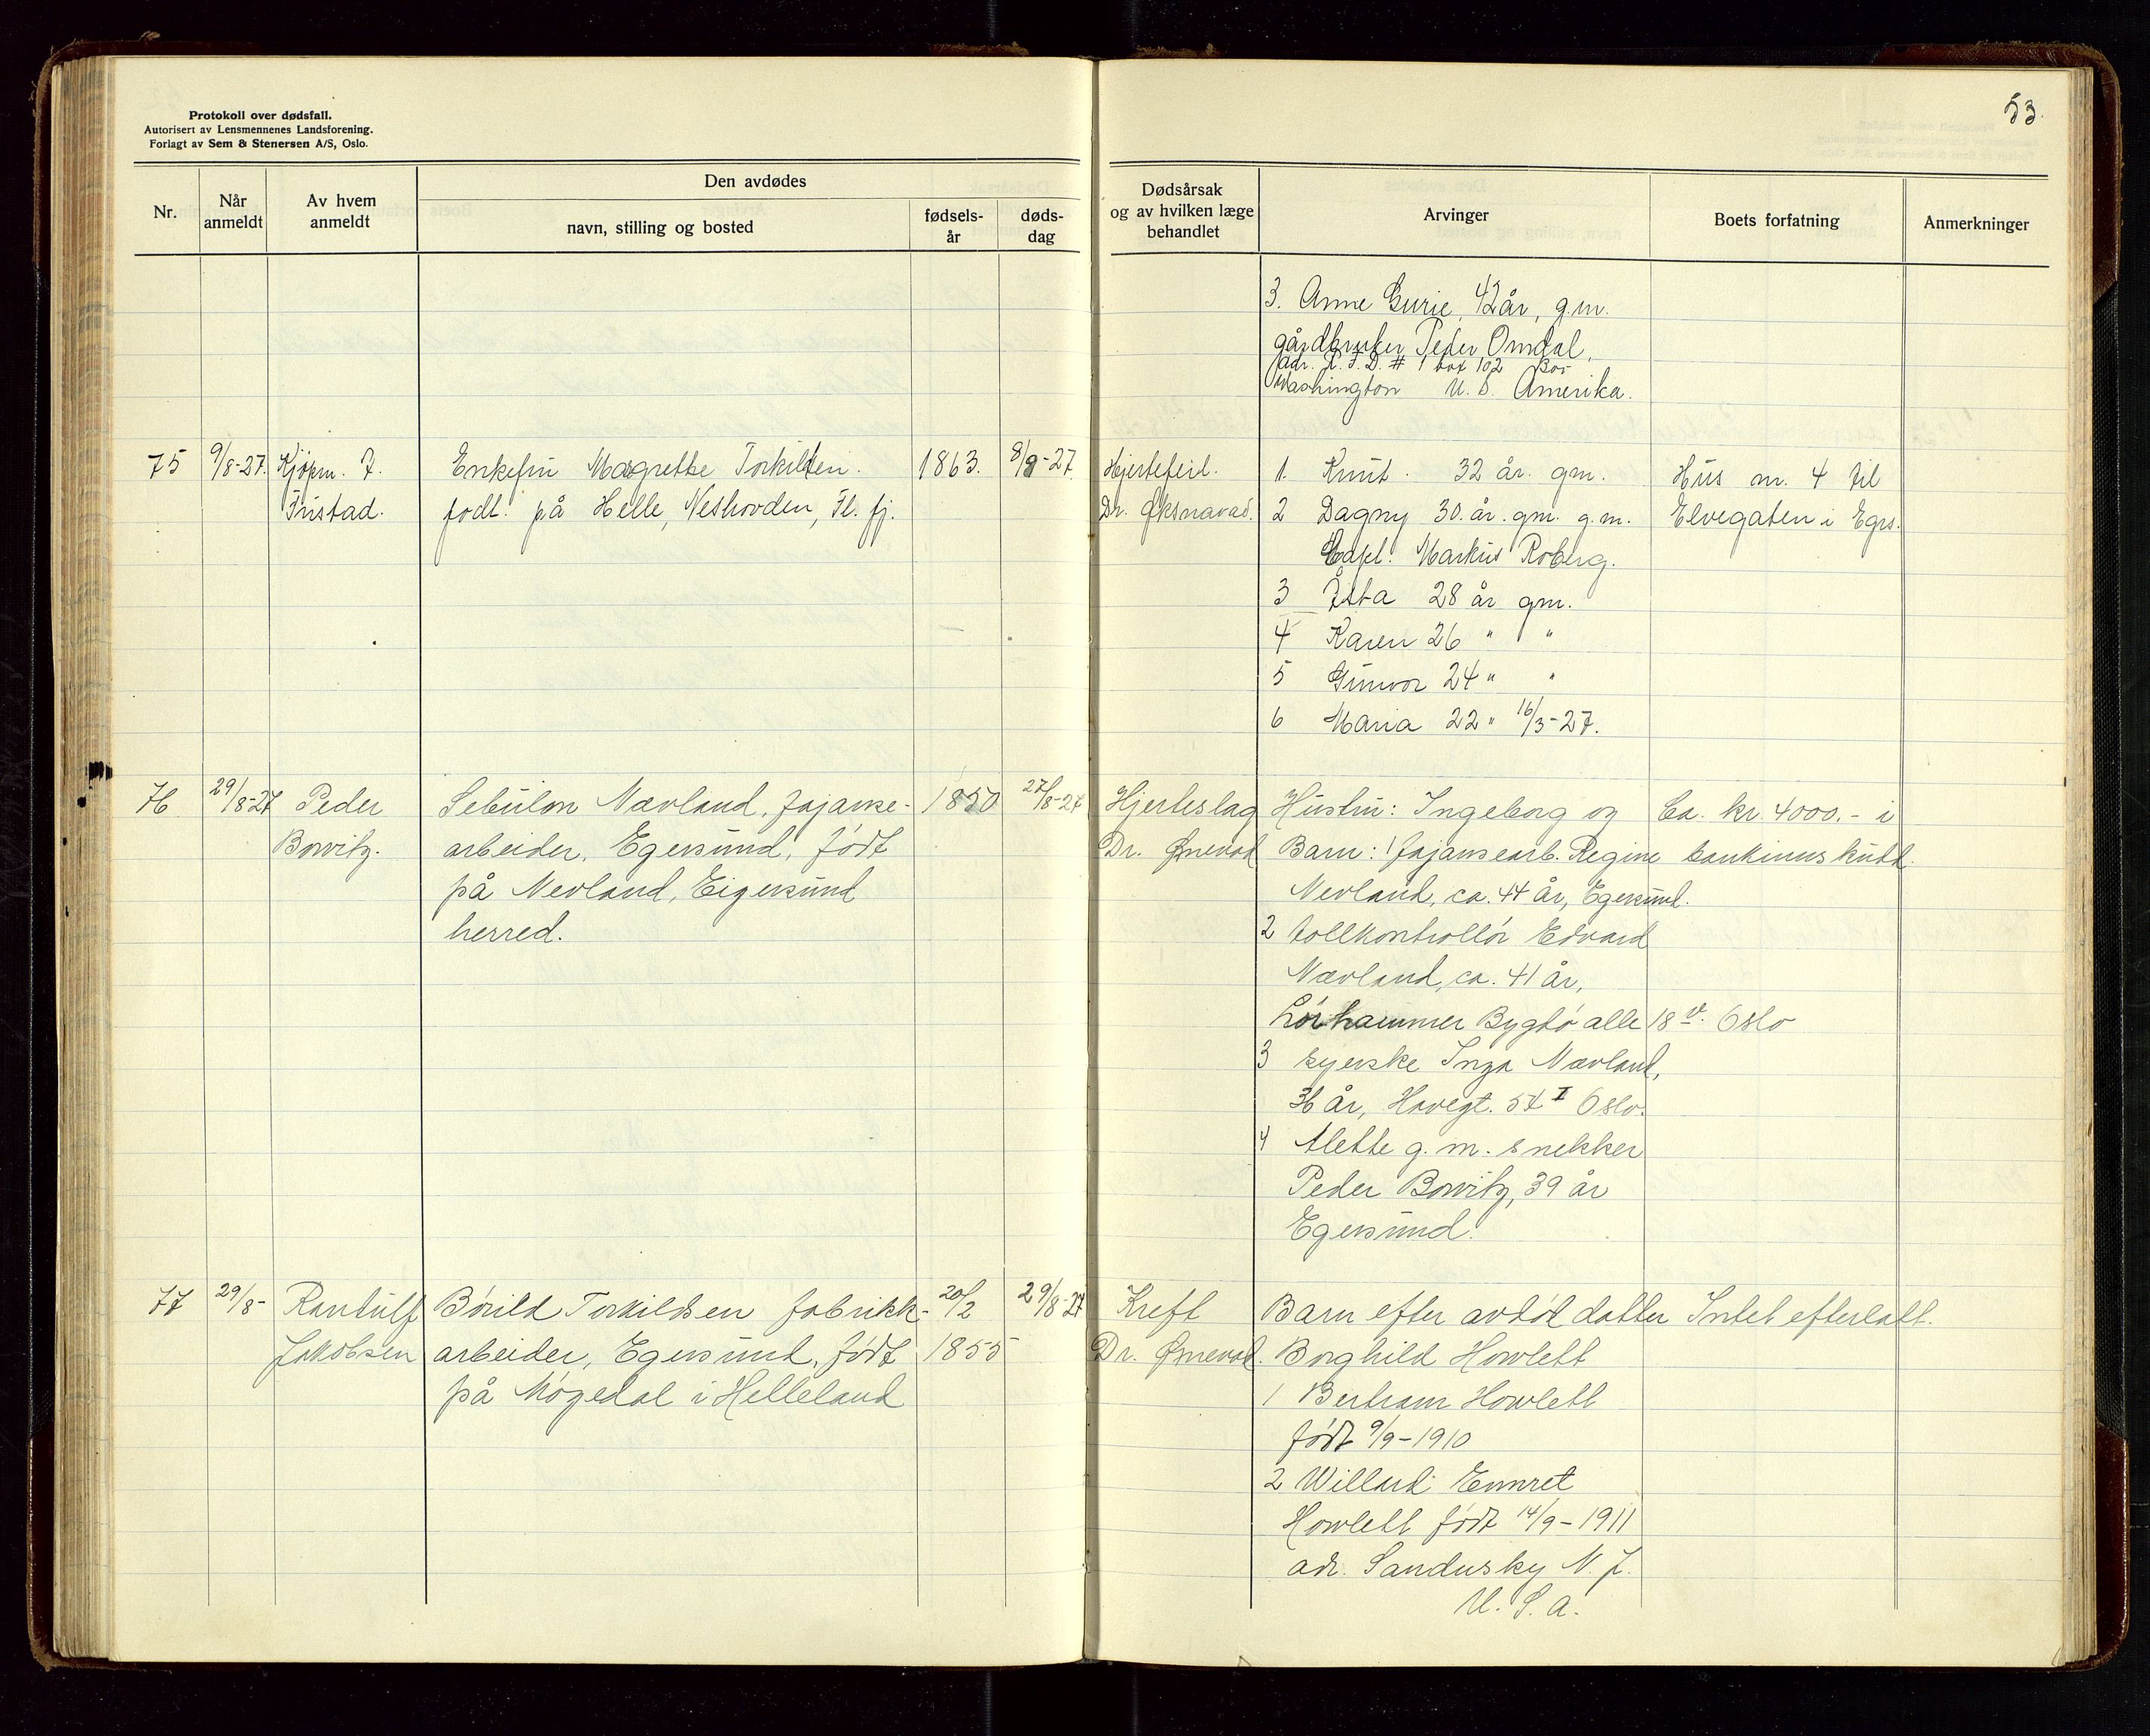 53.
Protokoll over dødsfall.
Autorisert av Lensmennenes Landsforening.
Forlagt av Sem & Stenersen A/S, Oslo.
Nr.
Når anmeldt
Av hvem anmeldt
Den avdødes
navn, stilling og bosted
fødsels-år
døds-dag
Dødsårsak og av hvilken læge behandlet
Arvinger
Boets forfatning
Anmerkninger
3. Anne Gurie, 42 år, g.m.
gårdbruker Peder Omdal,
adr. R. F. D. # 1 box 102
Washington U. S. Amerika.
75
9/8-27.
Kjøpm. J.
Tristad.
Enkefru Magrethe Torkildsen.
født på Helle, Neshovden, Fl. fj.
1863.
8/8-27
Hjertefeil.
Dr. Øksnavad.
1. Knut. 32 år. gm.
2 Dagny 30. år. gm. g.m.
Capt. Markus Roberg.
3 Åsta 28 år gm.
4 Karen 26 " "
5 Gunvor 24 " "
6 Maria 22 " 16/3-27.
Hus nr. 4 til
Elvegaten i Egrs.
76
29/8-27
Peder
Bowitz.
Sebulon Nævland, fajanse-
arbeider, Egersund, født
på Nevland, Eigersund
herred.
1850
27/8-27
Hjerteslag
Dr. Ørnevad
Hustru: Ingeborg og
Barn: 1 fajansearb. Regine
Nevland, ca. 44 år, Egersund.
2 tollkontrollør Edvard
Nævland, ca. 41 år,
Lørhammer Bygdø alle 18 v. Oslo
3 syerske Inga Nævland,
36 år, Havegt. 54 I Oslo.
4 Alette g. m. snekker
Peder Bowitz, 39 år
Egersund.
Ca. kr. 4000.- i
bankinnskudd.
77
29/8-
Randulf
Jakobsen
Børild Torkildsen fabrikk-
arbeider, Egersund, født
på Møgedal i Helleland
20/2
1855
29/8-27
Kreft
Dr. Ørnevad.
Barn efter avdød datter
Borghild Howlett
1 Bertram Howlett
født 9/9-1910
2 Willard Emmret
Howlett født 14/9-1911
adr. Sandusky N. J.
U. S. A.
Intet efterlatt.